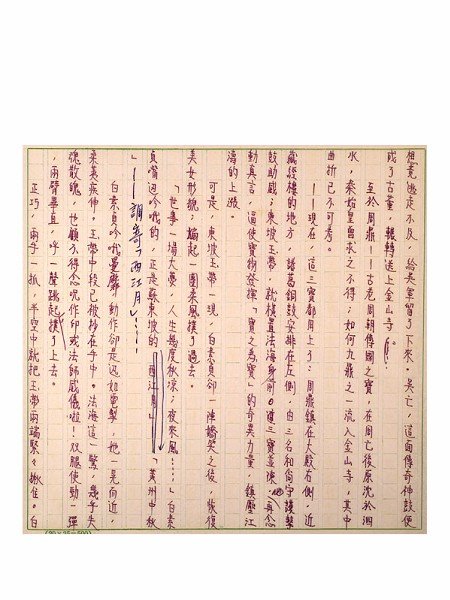 相竟敗走不反，給是軍留了下來。吳亡，這面傳奇神鼓便
成了古董，輾轉送上金山寺。
至於周鼎！！古老周朝傳國之寶，在周亡後原沈於泗
水，秦始皇曾求之不得；如何九鼎之一流入金山寺，其中
曲折已不可考。
！！現在，這三寶都用上了：周鼎鎮在大殿右側，近
藏經樓的地方，諸葛銅鼓安排在左側，由三名和尚守護擊
鼓助威；東坡玉帶，就橫置法海身前。這三寶並陳，再念
動真言，逼使寶物發揮「寶之為寶」的奇異力量，鎮壓江
濤的上漲。
可是，東坡玉帶一現，白素貞卻一陣嬌笑之後，恢復
美女形貌；蹁起一團柔風撲了過去。
「世事一場大夢，人生幾度秋涼；夜來風……」白素
貞嘴裡吟哦的，正是蘇東坡的「黃州中秋
」——調寄「西江月」……
白素貞吟哦曼聲，動作卻是迅如雷擊，她一晃而近，
柔荑疾伸，玉帶中段已被抄在手中。法海這一驚，幾乎失
魂散魄，也顧不得念咒作印或法師威儀啦！雙腿使勁一彈
，兩臂暴直，呼一聲跳起撲了上去。
正巧，兩手一抓，半空中就把玉帶兩端緊緊揪住。白
(20×25=500)